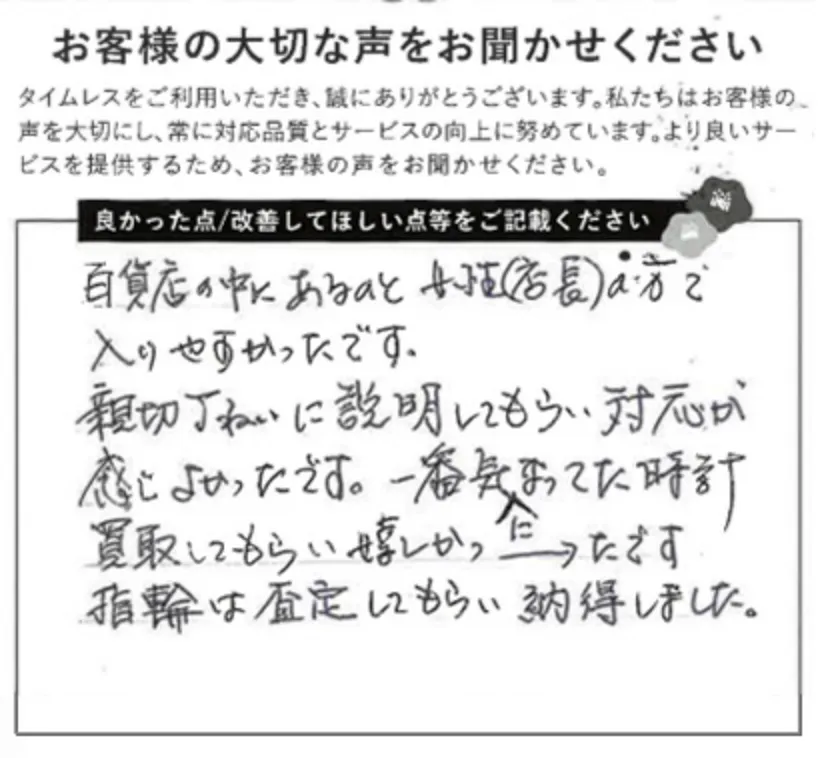 お客様の大切な声をお聞かせください
タイムレスをご利用いただき、誠にありがとうございます。私たちはお客様の
声を大切にし、常に対応品質とサービスの向上に努めています。より良いサー
ビスを提供するため、お客様の声をお聞かせください。
良かった点/改善してほしい点等をご記載ください
百貨店の中にあるのと 女性(店長)の方で
入りやすかったです。
親切丁ねいに説明してもらい 対応が
感じよかったです。一番気になってた時計
買取してもらい嬉しかったです
指輪は査定してもらい 納得しました。